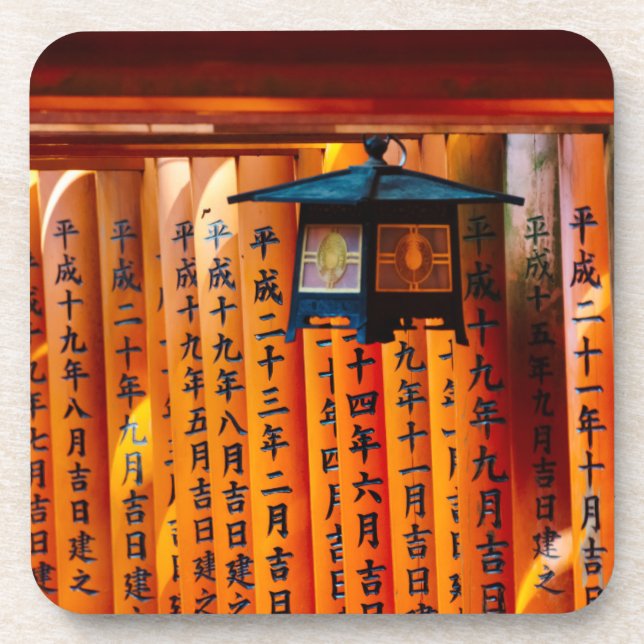 平成二十一年十月吉日建之
平成十五年九月吉日建之
平成十九年九月吉日
年十一月吉日建
十四年六月吉日
十年四月吉日
平成二十三年二月吉日
平成十九年八月吉日建
平成十九年五月吉日建之
平成二十年九月吉日建之
平成十九年八月吉日建之
九年七月吉日建之